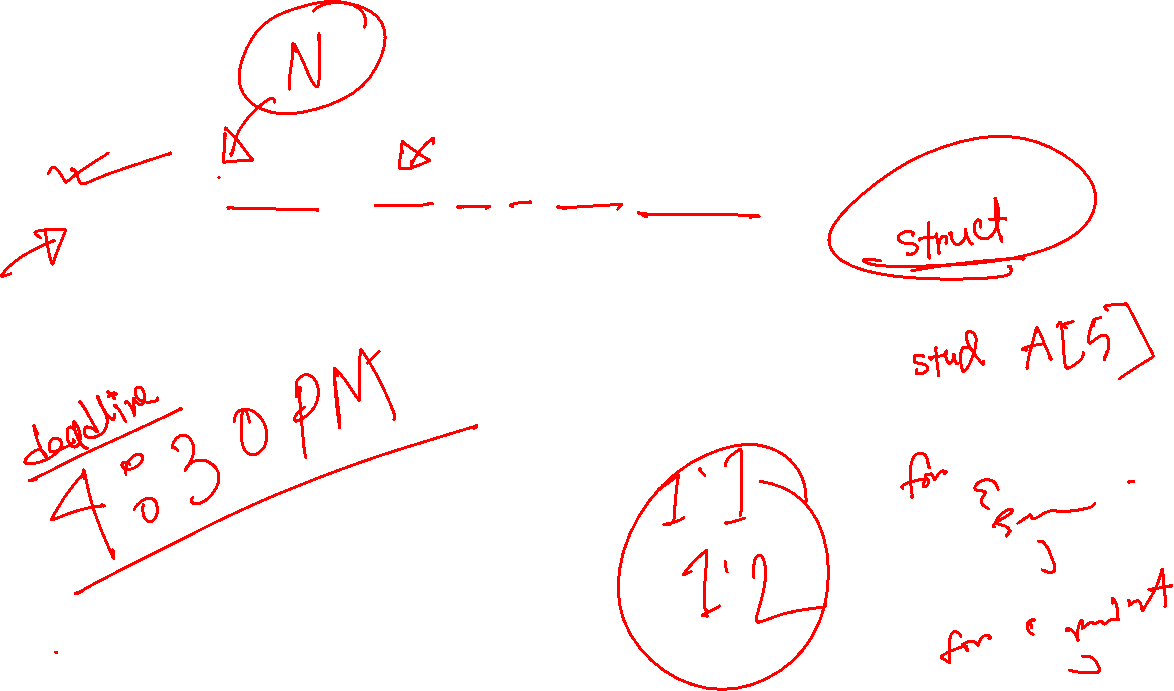 N
struct
stud A[5]
deadline
4:30 PM
1.1
1.2
for
for